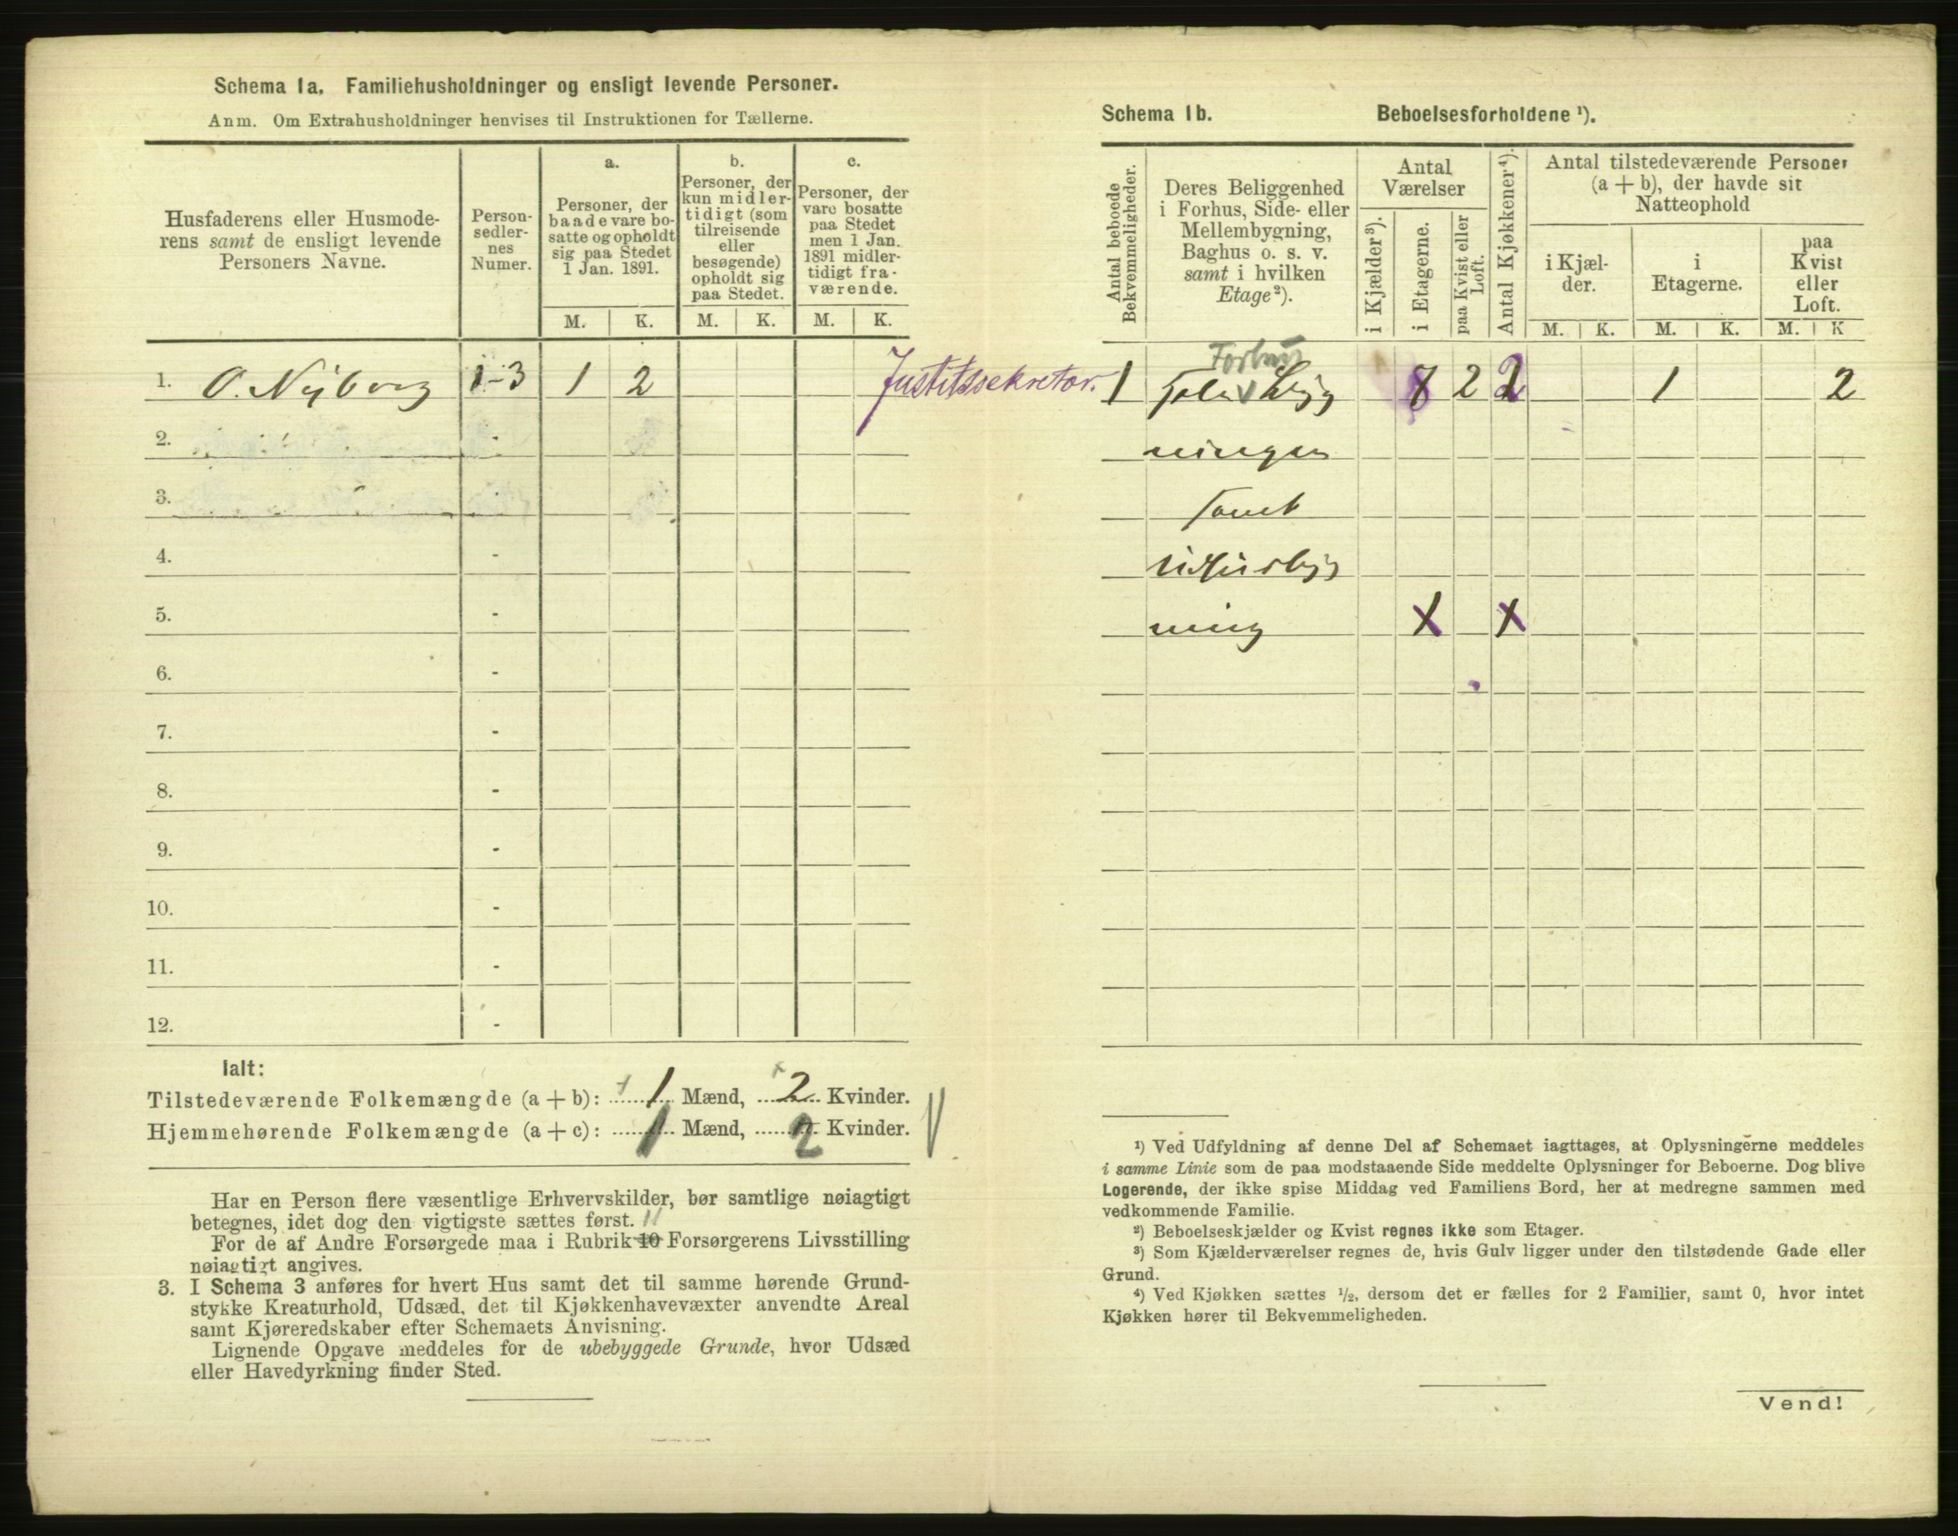 Schema 1a. Familiehusholdninger og ensligt levende Personer.
Anm. Om Extrahusholdninger henvises til Instruktionen for Tællerne.
Husfaderens eller Husmode-
rens samt de ensligt levende
Personers Navne.
Person-
sedler-
nes
Numer.
a.
Personer, der
baade vare bo-
satte og opholdt
sig paa Stedet
1 Jan. 1891.
b.
Personer, der
kun midler-
tidigt (som
tilreisende
eller
besøgende)
opholdt sig
paa Stedet.
c.
Personer, der
vare bosatte
paa Stedet
men 1 Jan.
1891 midler-
tidigt fra-
værende.
M. K. M. K. M. K.
1. O. Nyborg 1-3 1 2 Justitssekretær.
2. -
3. -
4. -
5. -
6. -
7. -
8. -
9. -
10. -
11. -
12. -
Ialt:
Tilstedeværende Folkemængde (a + b): 1 Mænd, 2 Kvinder.
Hjemmehørende Folkemængde (a + c): 1 Mænd, 2 Kvinder.
Har en Person flere væsentlige Erhvervskilder, bør samtlige nøiagtigt
betegnes, idet dog den vigtigste sættes først. 11
For de af Andre Forsørgede maa i Rubrik 10 Forsørgerens Livsstilling
nøiagtigt angives.
3. I Schema 3 anføres for hvert Hus samt det til samme hørende Grund-
stykke Kreaturhold, Udsæd, det til Kjøkkenhavevæxter anvendte Areal
samt Kjøreredskaber efter Schemaets Anvisning.
Lignende Opgave meddeles for de ubebyggede Grunde, hvor Udsæd
eller Havedyrkning finder Sted.
Schema 1b. Beboelsesforholdene ¹).
Antal beboede
Bekvemmeligheder.
Deres Beliggenhed
i Forhus, Side- eller
Mellembygning,
Baghus o. s. v.
samt i hvilken
Etage²).
Antal
Værelser
i Kjælder³).
i Etagerne.
paa Kvist eller
Loft.
Antal Kjøkkener⁴).
Antal tilstedeværende Personer
(a + b), der havde sit
Natteophold
i Kjæl-
der.
i
Etagerne.
paa
Kvist
eller
Loft.
M. K. M. K. M. K
Forhus
1 bygg 2 1 2
ningen
samt
Udhusbyg
ning X X
¹) Ved Udfyldning af denne Del af Schemaet iagttages, at Oplysningerne meddeles
i samme Linie som de paa modstaaende Side meddelte Oplysninger for Beboerne. Dog blive
Logerende, der ikke spise Middag ved Familiens Bord, her at medregne sammen med
vedkommende Familie.
²) Beboelseskjælder og Kvist regnes ikke som Etager.
³) Som Kjælderværelser regnes de, hvis Gulv ligger under den tilstødende Gade eller
Grund.
⁴) Ved Kjøkken sættes ½, dersom det er fælles for 2 Familier, samt 0, hvor intet
Kjøkken hører til Bekvemmeligheden.
Vend!